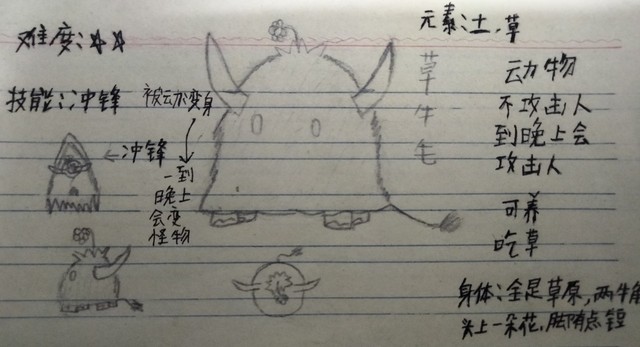 难度:☆☆
元素:土,草
技能:冲锋
被动变身
一到
晚上
会变
怪物
冲锋
草
牛
毛
动物
不攻击人
到晚上会
攻击人
可养
吃草
身体:全是草原,两牛角
头上一朵花,脚有点短